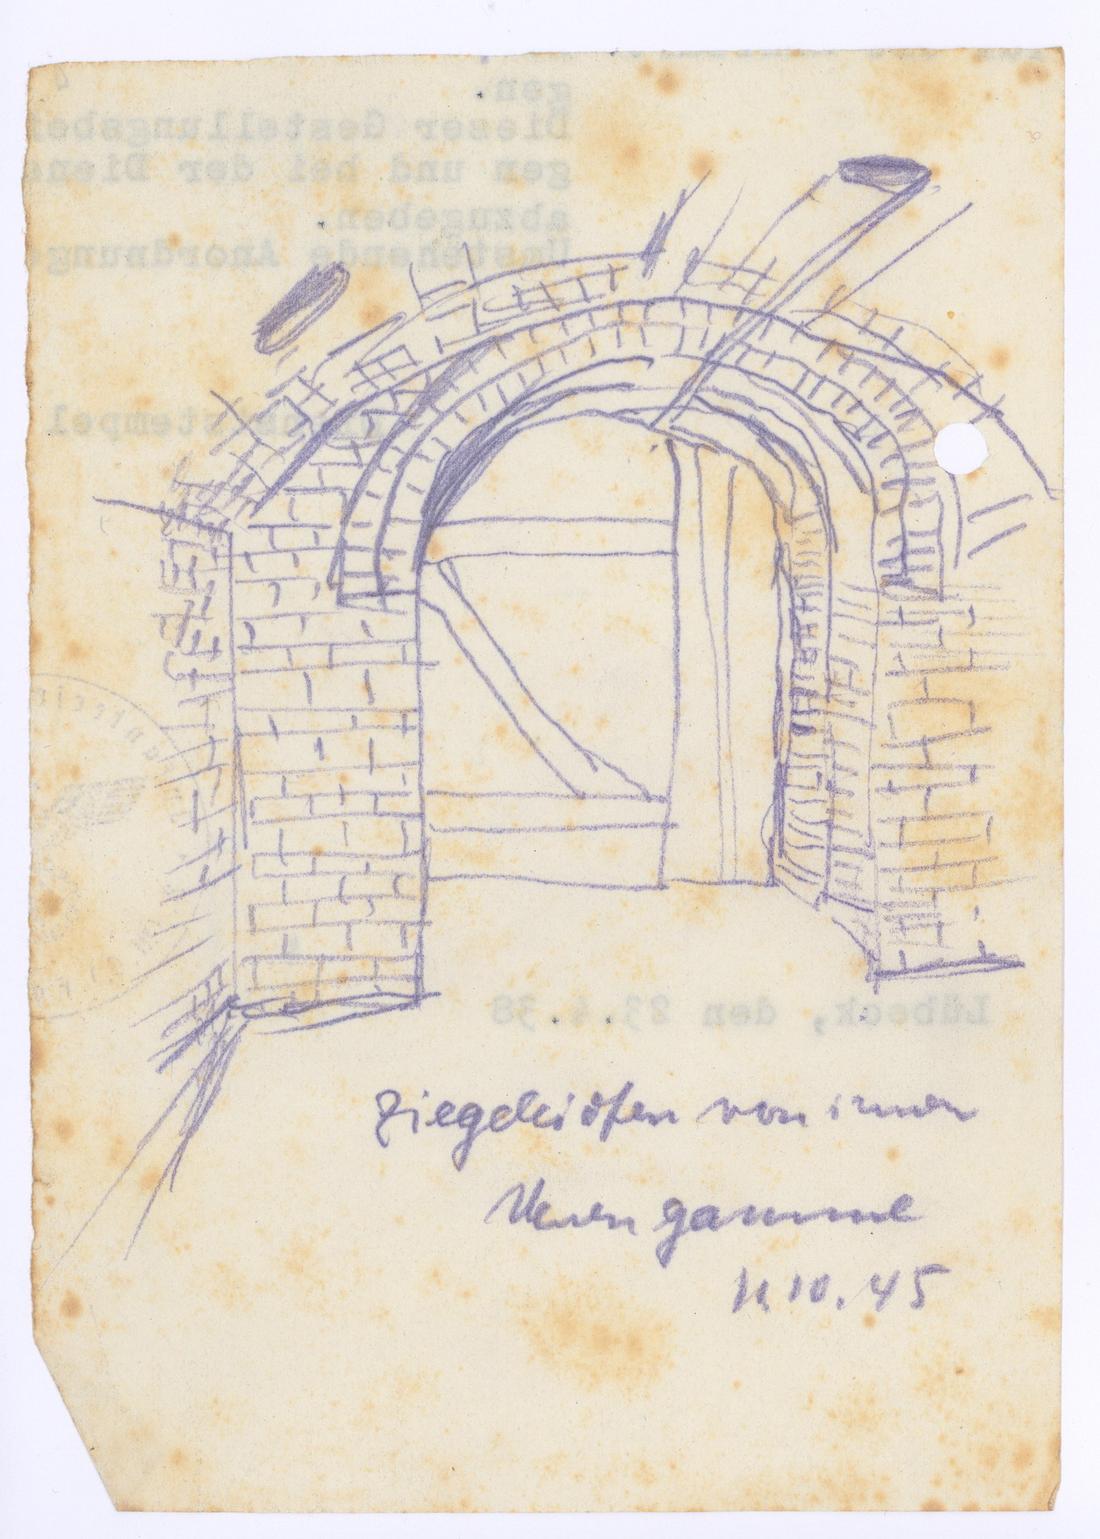 gen.
Dieser Gestellungsbe
gen und bei der Diens
abzugeben.
Umstehende Anordnung
stempel
Lübeck, den 23.4.38
Ziegeleiofen von innen
Neuengamme
11.10.45